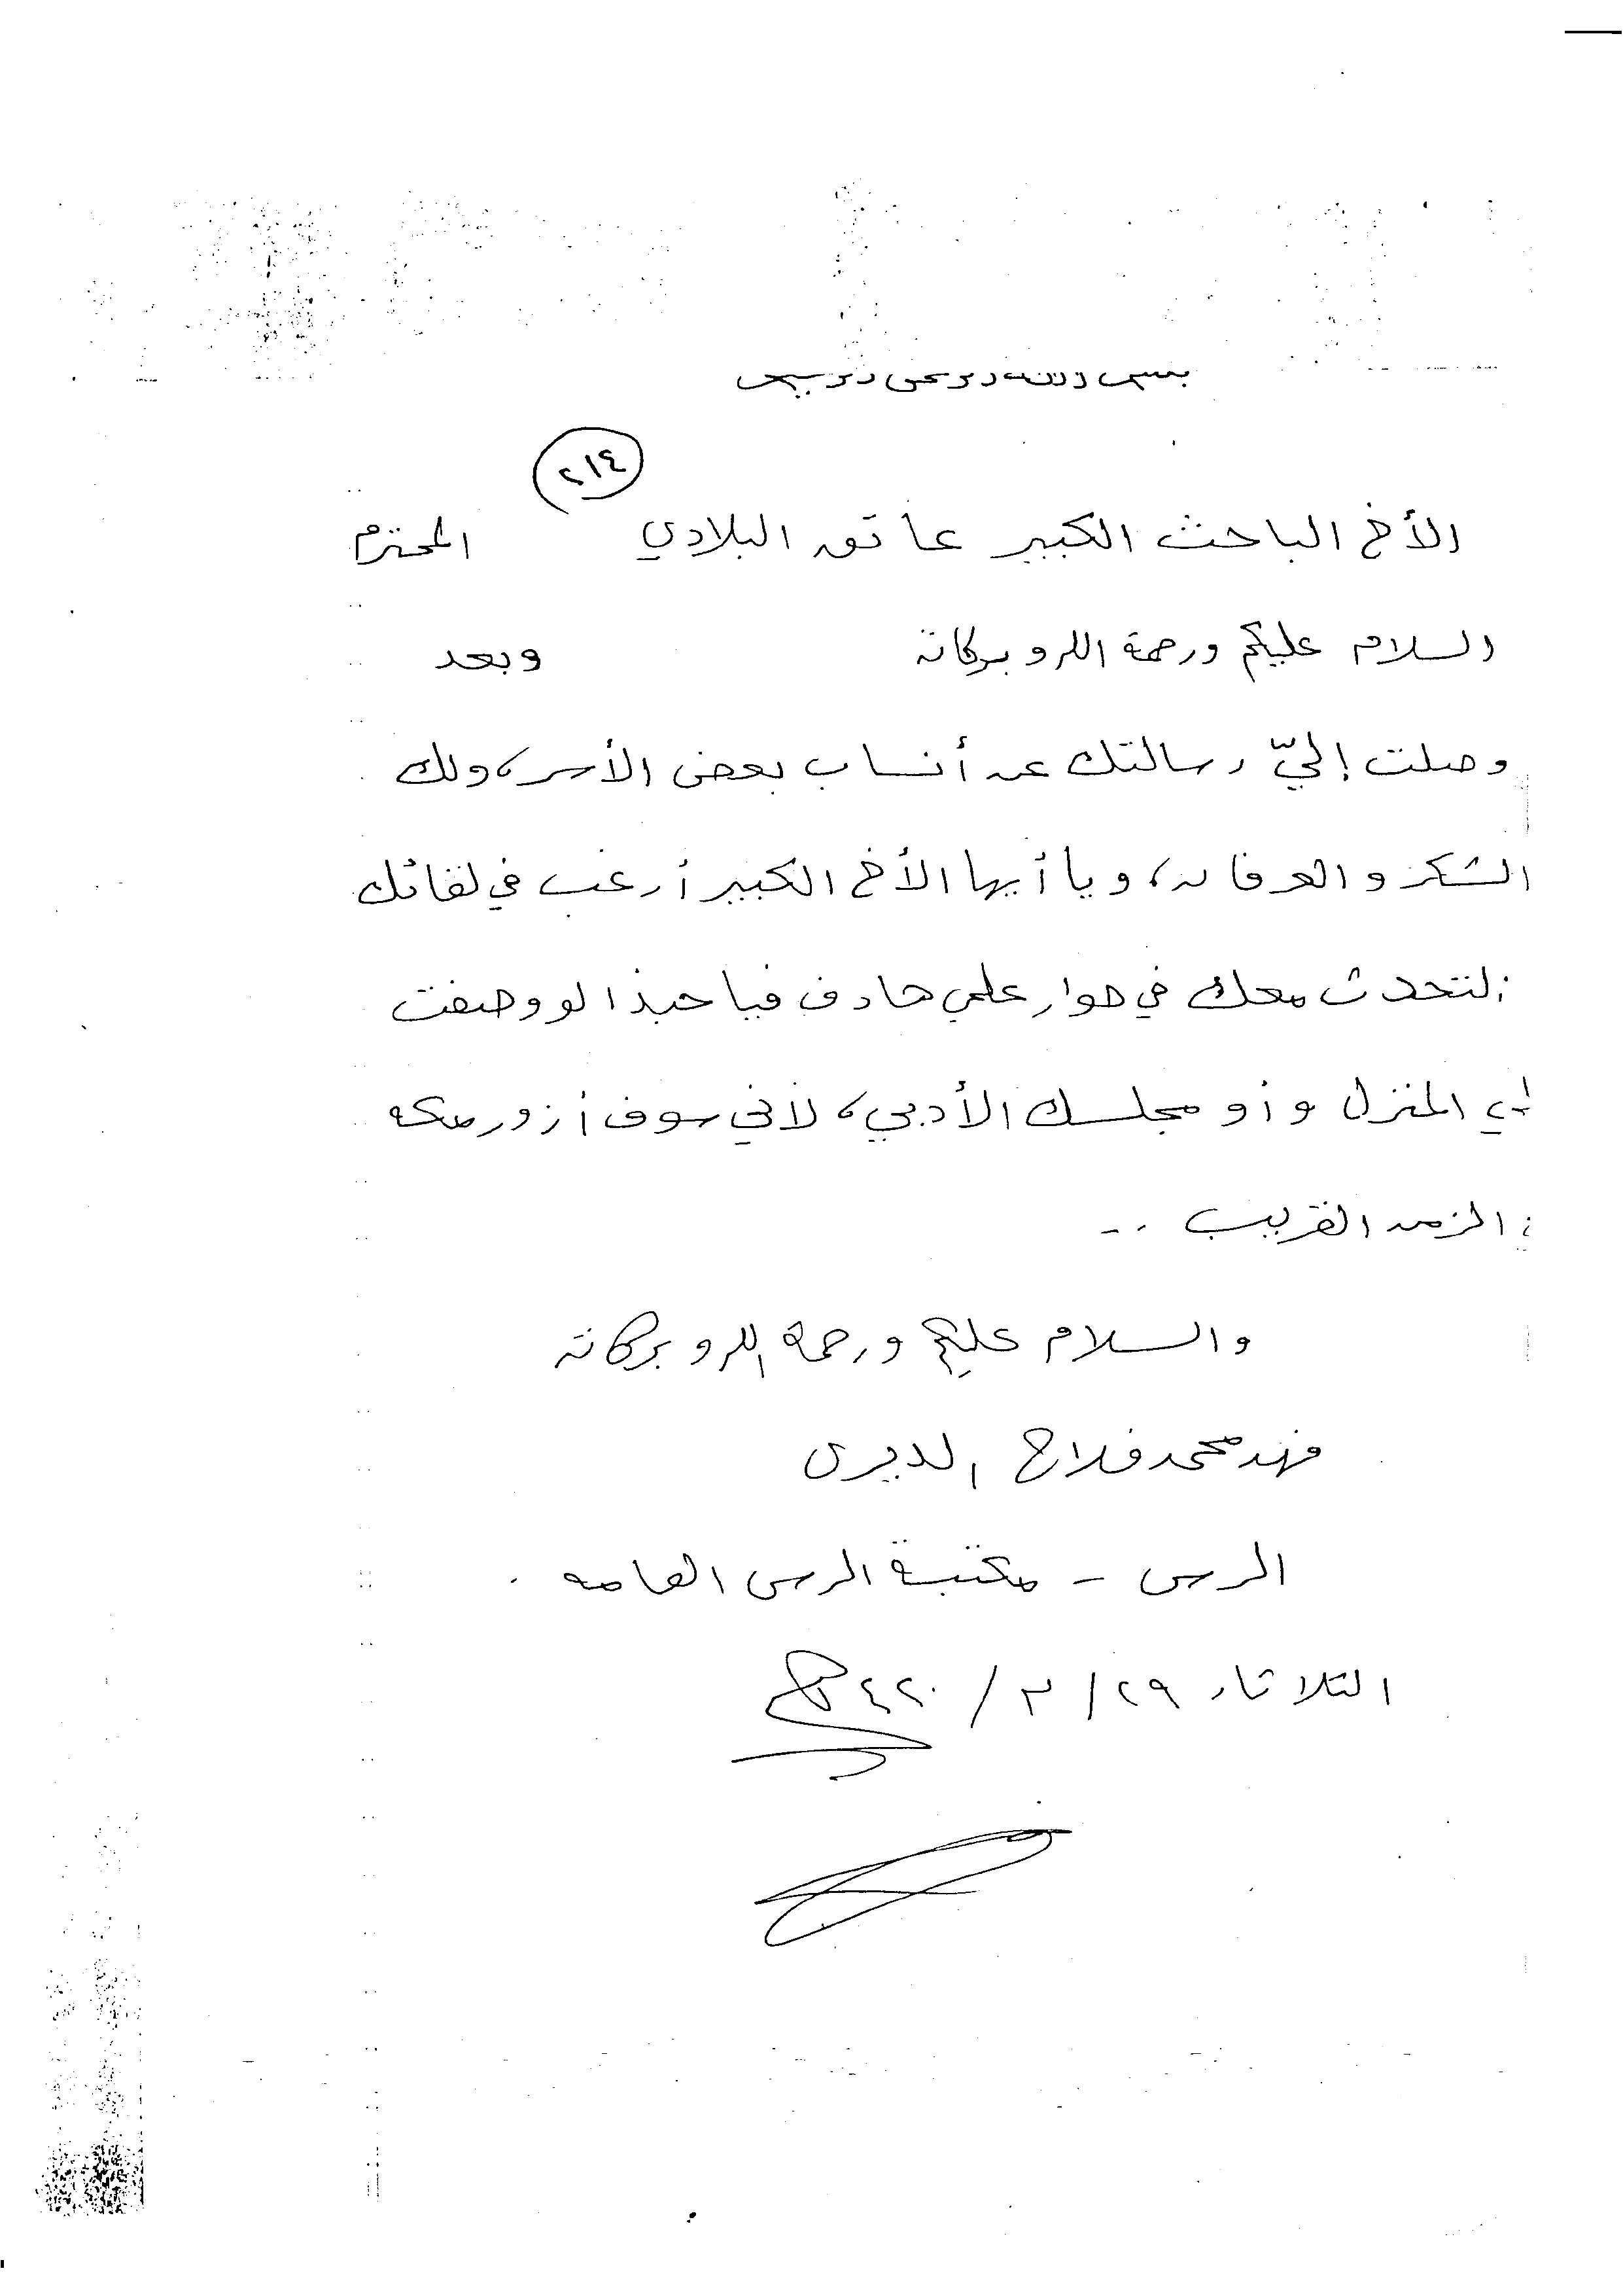 بسم الله الرحمن الرحيم
٢١٤
الأخ الباحث الكبير عاتق البلادي المحترم
السلام عليكم ورحمة الله وبركاته وبعد
وصلت إليّ رسالتك عن أنساب بعض الأسر، ولك
الشكر والعرفان، ويا أيها الأخ الكبير أرغب في لقائك
لنتحدث معك في حوار علمي هادف فيا حبذا لو وصفت
لي المنزل و أو مجلسك الأدبي، لاني سوف أزور مكه
الزمن القريب ..
والسلام عليكم ورحمة الله وبركاته
فهد محمد فلاح الديري
الرس - مكتبة الرس العامه .
الثلاثاء ٢٩ / ٣ / ٤٢٠